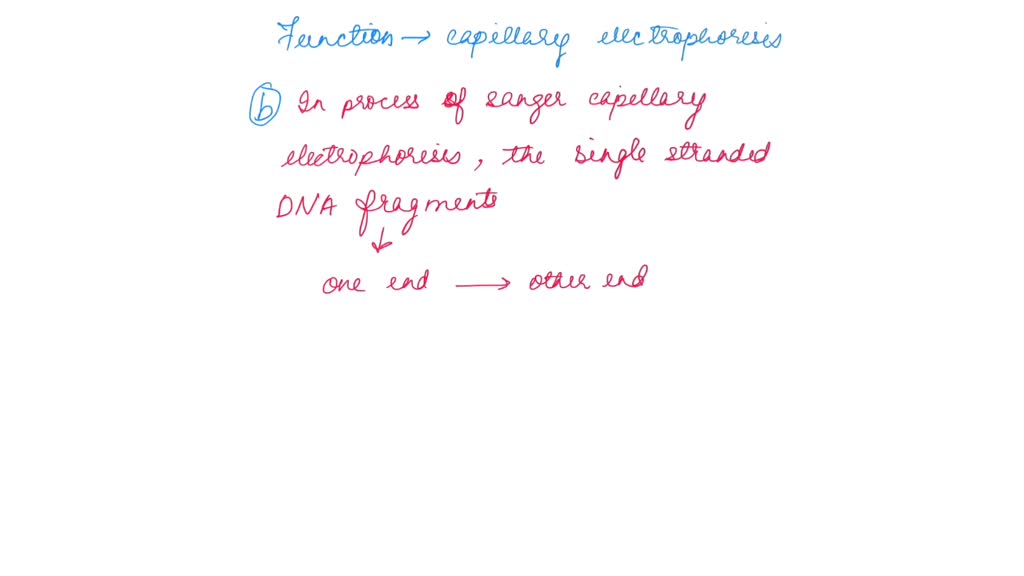 Function → capillary electrophoresis
b In process of sanger capillary
electrophoresis, the single stranded
DNA fragments
↓
one end → other end